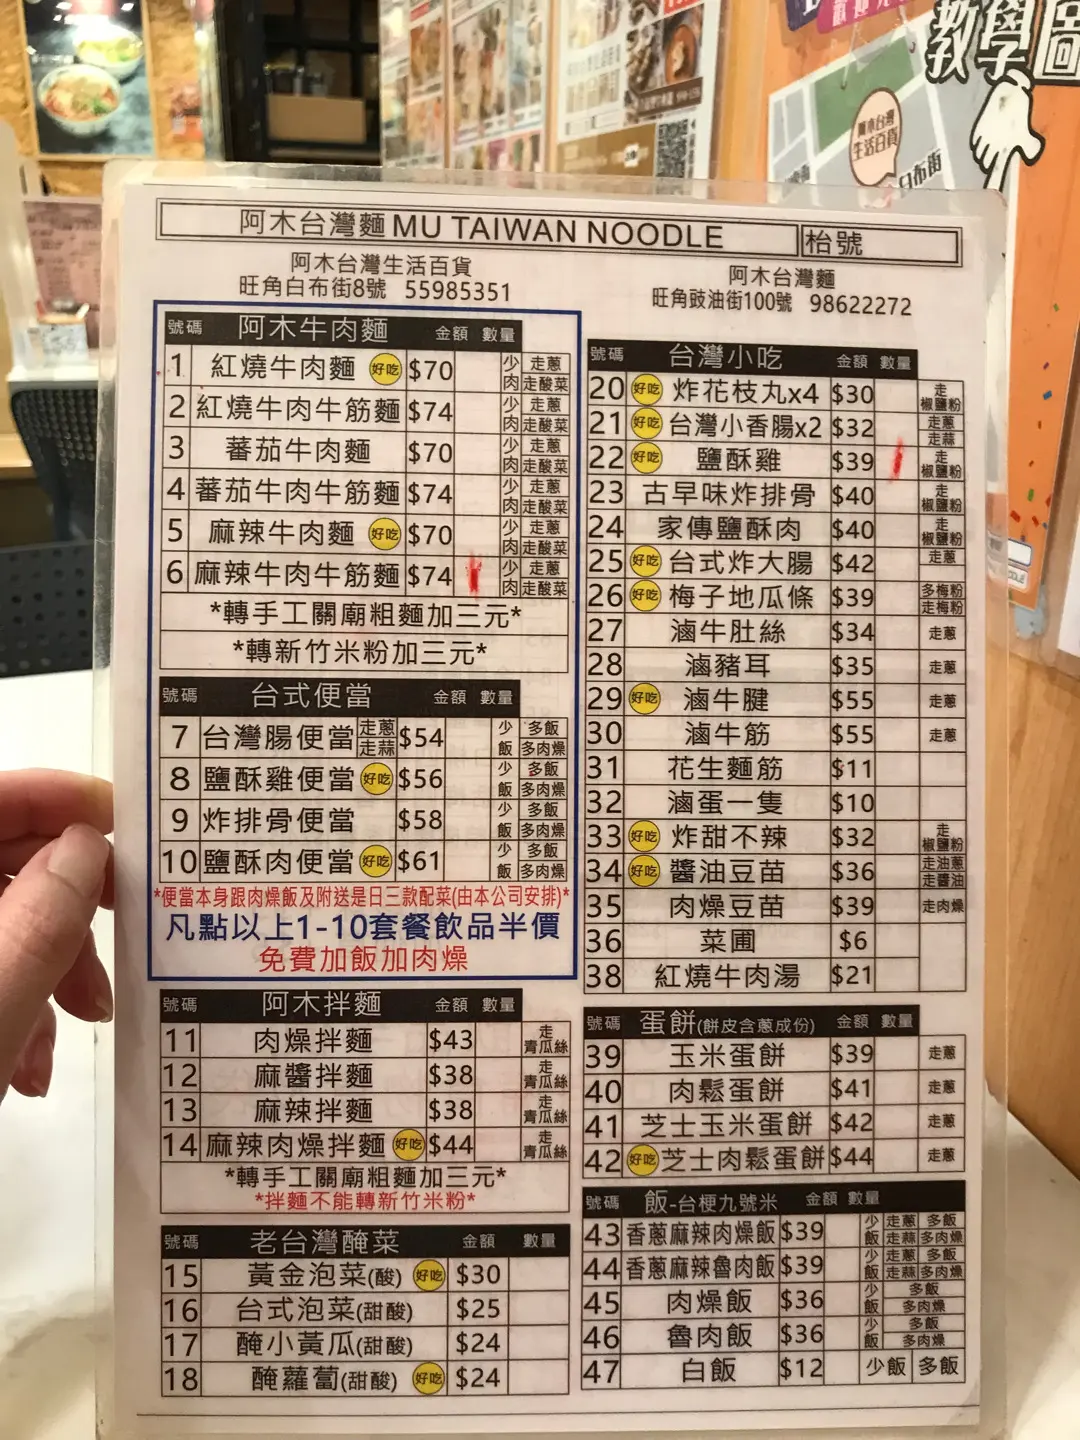 教學圖
阿木台灣
生活百貨
白布街
阿木台灣麵 MU TAIWAN NOODLE 枱號
阿木台灣生活百貨
旺角白布街8號 55985351
阿木台灣麵
旺角豉油街100號 98622272
號碼 阿木牛肉麵 金額 數量
1 紅燒牛肉麵 好吃 $70 少肉 走蔥 走酸菜
2 紅燒牛肉牛筋麵 $74 少肉 走蔥 走酸菜
3 蕃茄牛肉麵 $70 少肉 走蔥 走酸菜
4 蕃茄牛肉牛筋麵 $74 少肉 走蔥 走酸菜
5 麻辣牛肉麵 好吃 $70 少肉 走蔥 走酸菜
6 麻辣牛肉牛筋麵 $74 少肉 走蔥 走酸菜
*轉手工關廟粗麵加三元*
*轉新竹米粉加三元*
號碼 台式便當 金額 數量
7 台灣腸便當 走蔥 走蒜 $54 少飯 多飯 多肉燥
8 鹽酥雞便當 好吃 $56 少飯 多飯 多肉燥
9 炸排骨便當 $58 少飯 多飯 多肉燥
10 鹽酥肉便當 好吃 $61 少飯 多飯 多肉燥
*便當本身跟肉燥飯及附送是日三款配菜(由本公司安排)*
凡點以上1-10套餐飲品半價
免費加飯加肉燥
號碼 阿木拌麵 金額 數量
11 肉燥拌麵 $43 走青瓜絲
12 麻醬拌麵 $38 走青瓜絲
13 麻辣拌麵 $38 走青瓜絲
14 麻辣肉燥拌麵 好吃 $44 走青瓜絲
*轉手工關廟粗麵加三元*
*拌麵不能轉新竹米粉*
號碼 老台灣醃菜 金額 數量
15 黃金泡菜(酸) 好吃 $30
16 台式泡菜(甜酸) $25
17 醃小黃瓜(甜酸) $24
18 醃蘿蔔(甜酸) 好吃 $24
號碼 台灣小吃 金額 數量
20 好吃 炸花枝丸x4 $30 走椒鹽粉
21 好吃 台灣小香腸x2 $32 走蔥 走蒜
22 好吃 鹽酥雞 $39 走椒鹽粉
23 古早味炸排骨 $40 走椒鹽粉
24 家傳鹽酥肉 $40 走椒鹽粉
25 好吃 台式炸大腸 $42 走蔥
26 好吃 梅子地瓜條 $39 多梅粉 走梅粉
27 滷牛肚絲 $34 走蔥
28 滷豬耳 $35 走蔥
29 好吃 滷牛腱 $55 走蔥
30 滷牛筋 $55 走蔥
31 花生麵筋 $11
32 滷蛋一隻 $10
33 好吃 炸甜不辣 $32 走椒鹽粉
34 好吃 醬油豆苗 $36 走油蔥 走醬油
35 肉燥豆苗 $39 走肉燥
36 菜圃 $6
38 紅燒牛肉湯 $21
號碼 蛋餅(餅皮含蔥成份) 金額 數量
39 玉米蛋餅 $39 走蔥
40 肉鬆蛋餅 $41 走蔥
41 芝士玉米蛋餅 $42 走蔥
42 好吃 芝士肉鬆蛋餅 $44 走蔥
號碼 飯-台梗九號米 金額 數量
43 香蔥麻辣肉燥飯 $39 少飯 走蔥 多飯 走蒜 多肉燥
44 香蔥麻辣魯肉飯 $39 少飯 走蔥 多飯 走蒜 多肉燥
45 肉燥飯 $36 少飯 多飯 多肉燥
46 魯肉飯 $36 少飯 多飯 多肉燥
47 白飯 $12 少飯 多飯